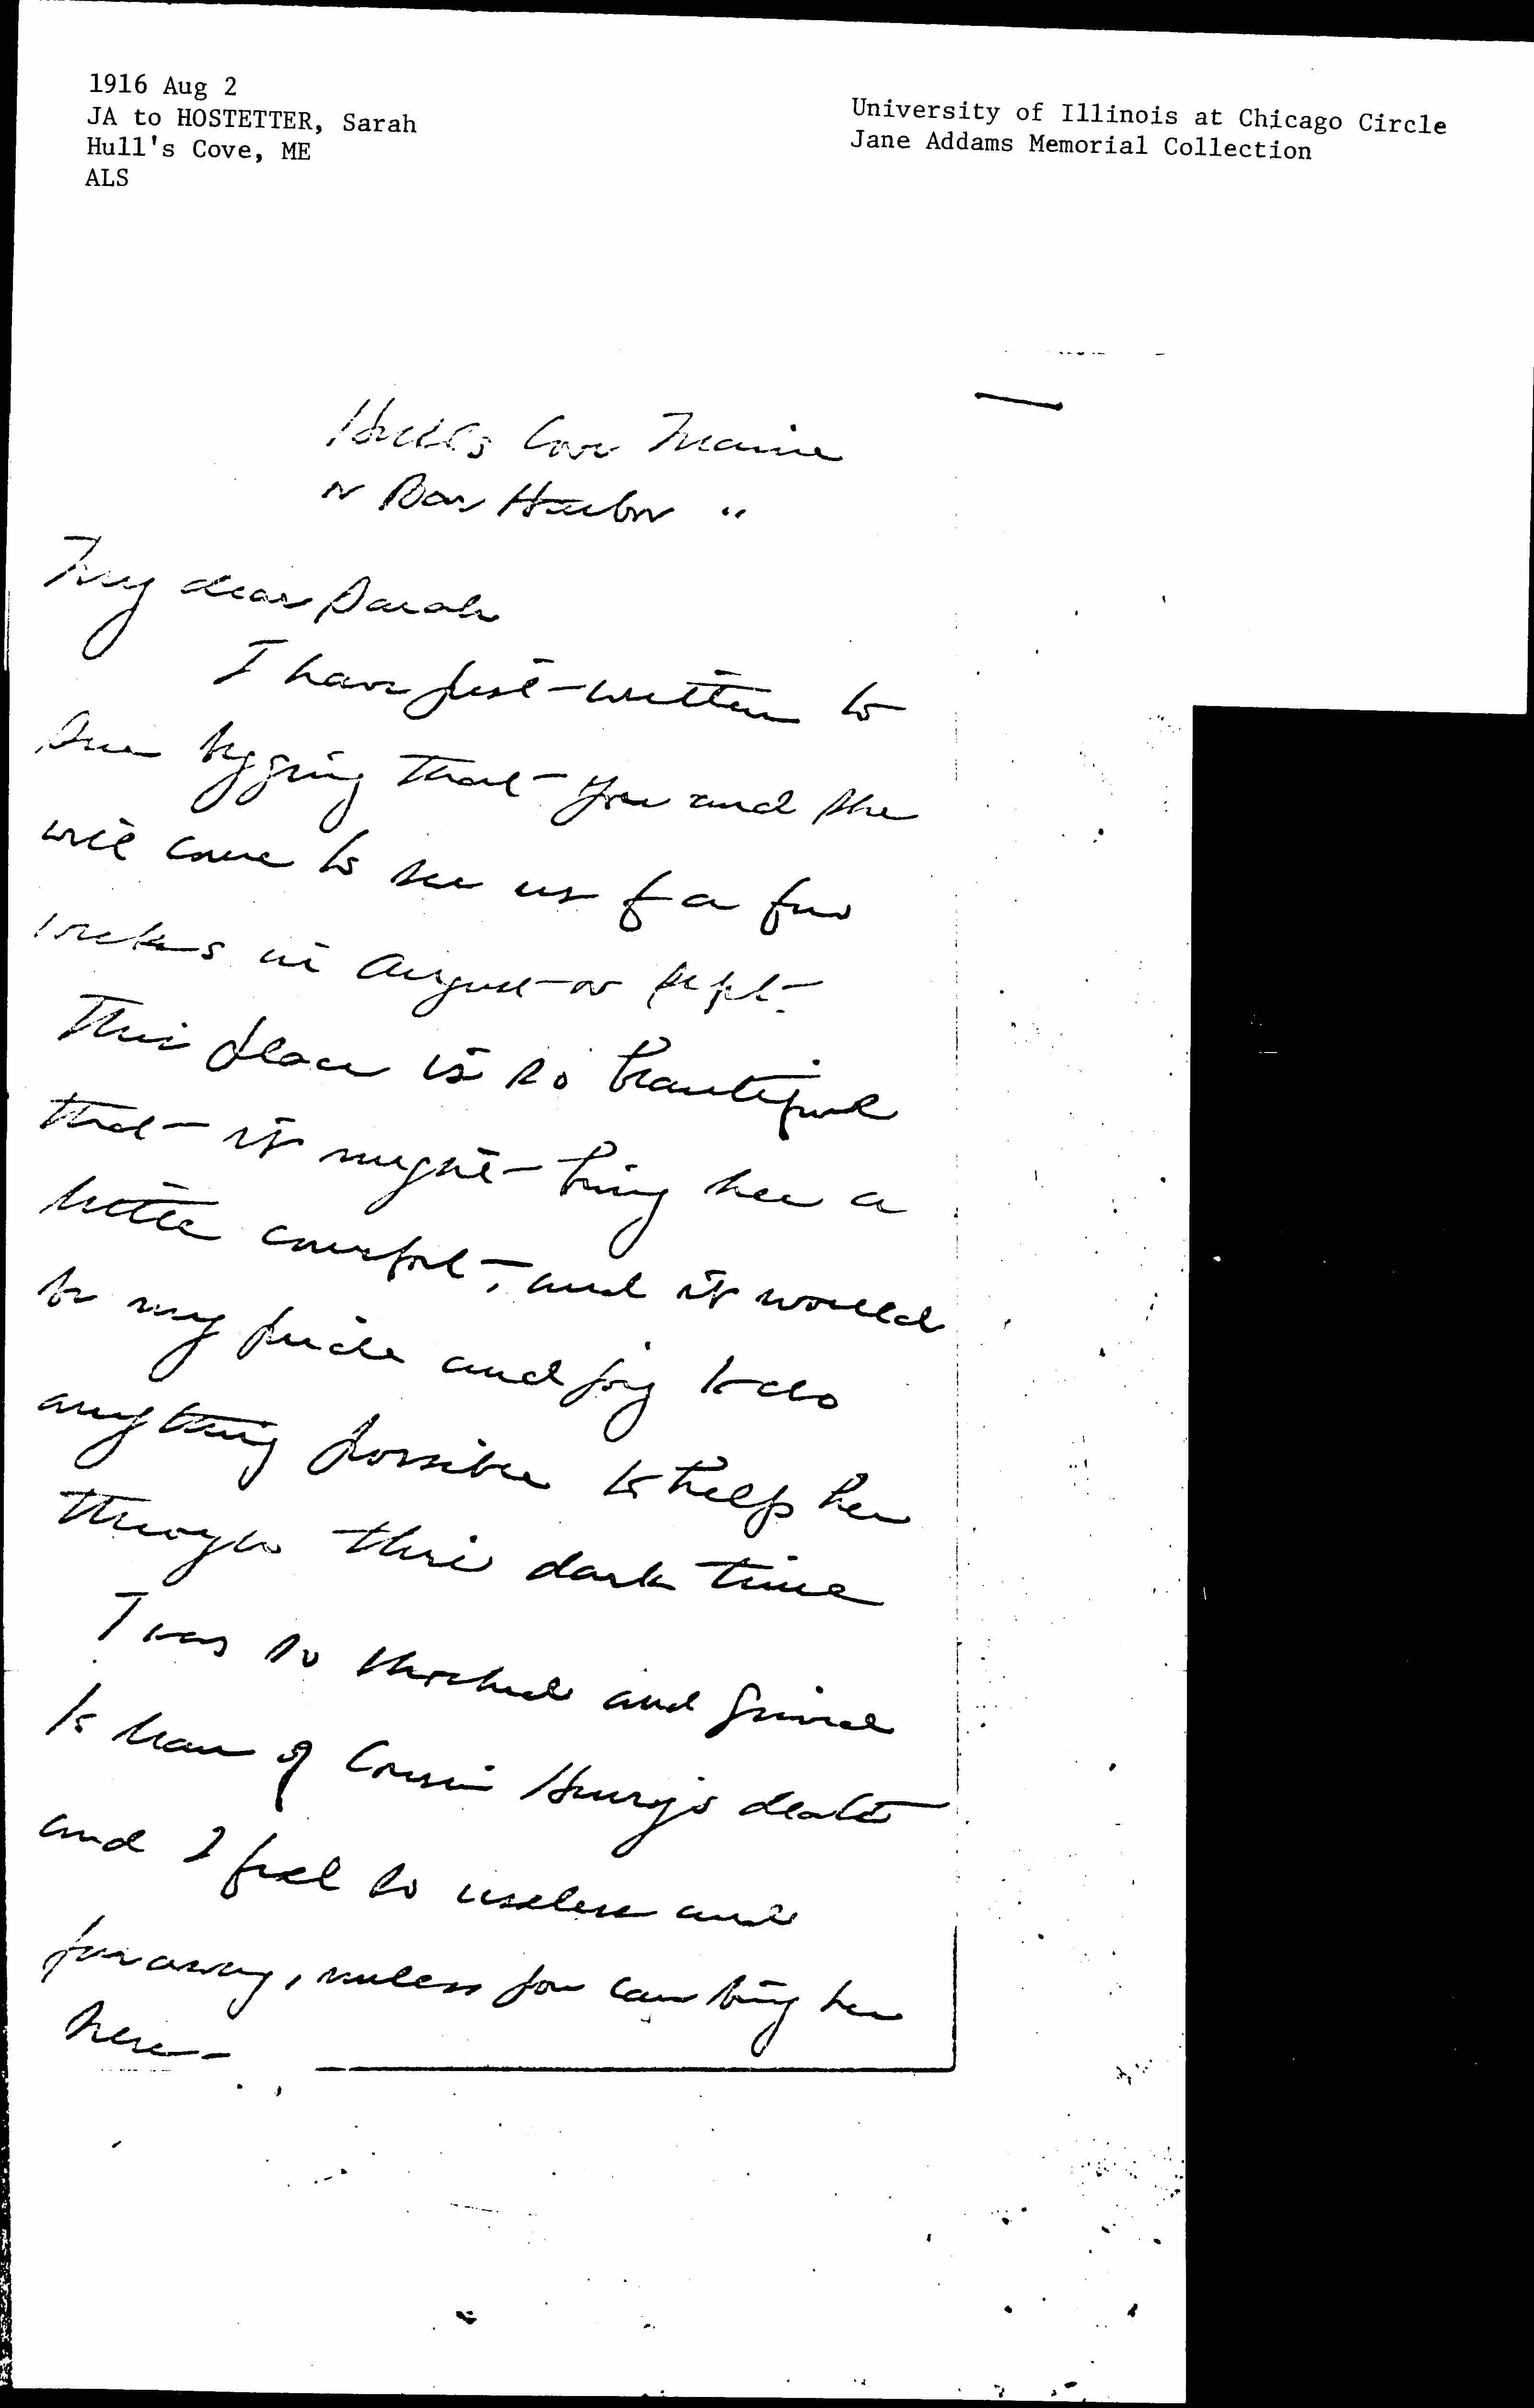 1916 Aug 2
JA to HOSTETTER, Sarah
Hull's Cove, ME
ALS
University of Illinois at Chicago Circle
Jane Addams Memorial Collection
Hull's Cove Maine
or Bar Harbor "
My dear Sarah
I have just written to
Sue begging that you and she
will come to see us for a few
weeks in August or Sept.
This place is so beautiful
that it might bring her a
little comfort, and it would
be my pride and joy to do
anything possible to help her
through this dark time
I was so shocked and grieved
to hear of Cousin Henry's death
and I feel so useless and
far away, unless you can bring her
here -